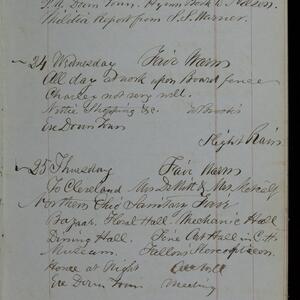 P.M. Down Town. Hymn Book to Nelson.
Report from P.S. Warner.
24 Wednesday Fair Warm
All day at work upon Board fence
Charley not very well.
Nettie Shopping &c.
Eve Down Town
Slight Rain
25 Thursday Fair Warm
To Cleveland Mrs DeWitt & Mrs Metcalf
Northern Ohio Sanitary Fair
Bazaar. Floral Hall Mechanic Hall
Dining Hall. Fine Art Hall in C.H.
Museum. Fallows Stereopticon.
Home at Night
Eve Down Town Meeting